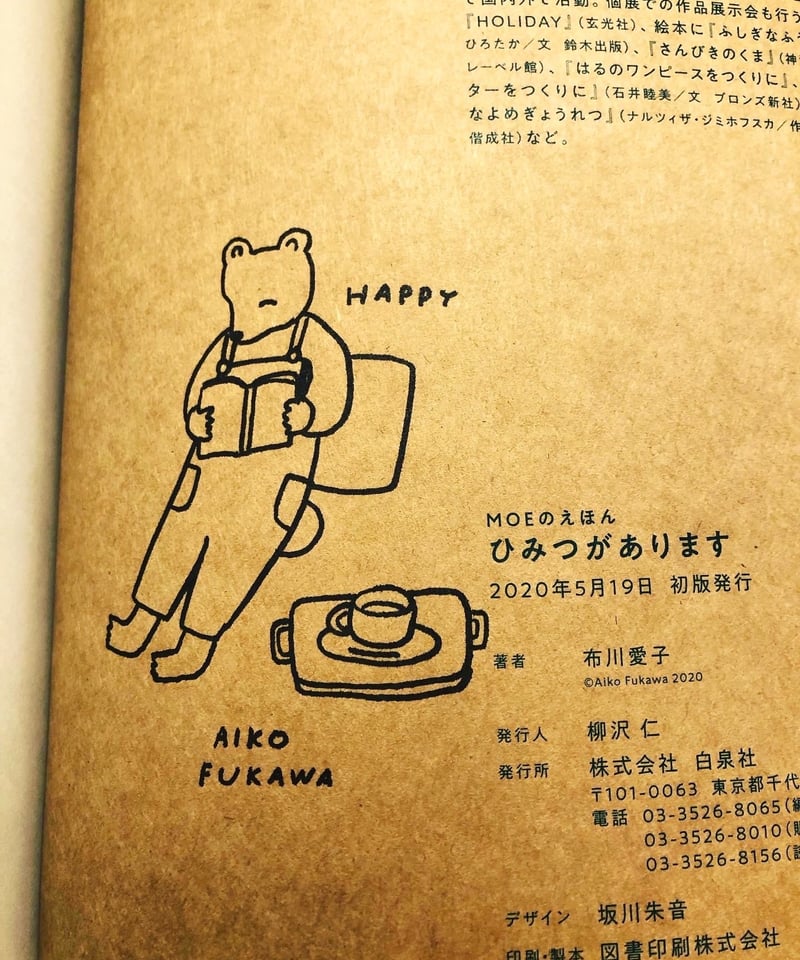 国内外で活動。個展での作品展示会も行う
『HOLIDAY』(玄光社)、絵本に『ふしぎなふ
ひろたか/文 鈴木出版)、『さんびきのくま』(神
レーベル館)、『はるのワンピースをつくりに』、
ターをつくりに』(石井睦美/文 ブロンズ新社)
なよめぎょうれつ』(ナルツィザ・ジミホフスカ/作
偕成社)など。
HAPPY
MOEのえほん
ひみつがあります
2020年5月19日 初版発行
著者 布川愛子
©Aiko Fukawa 2020
発行人 柳沢 仁
発行所 株式会社 白泉社
〒101-0063 東京都千代
電話 03-3526-8065(編
03-3526-8010(販
03-3526-8156(
AIKO
FUKAWA
デザイン 坂川朱音
印刷・製本 図書印刷株式会社